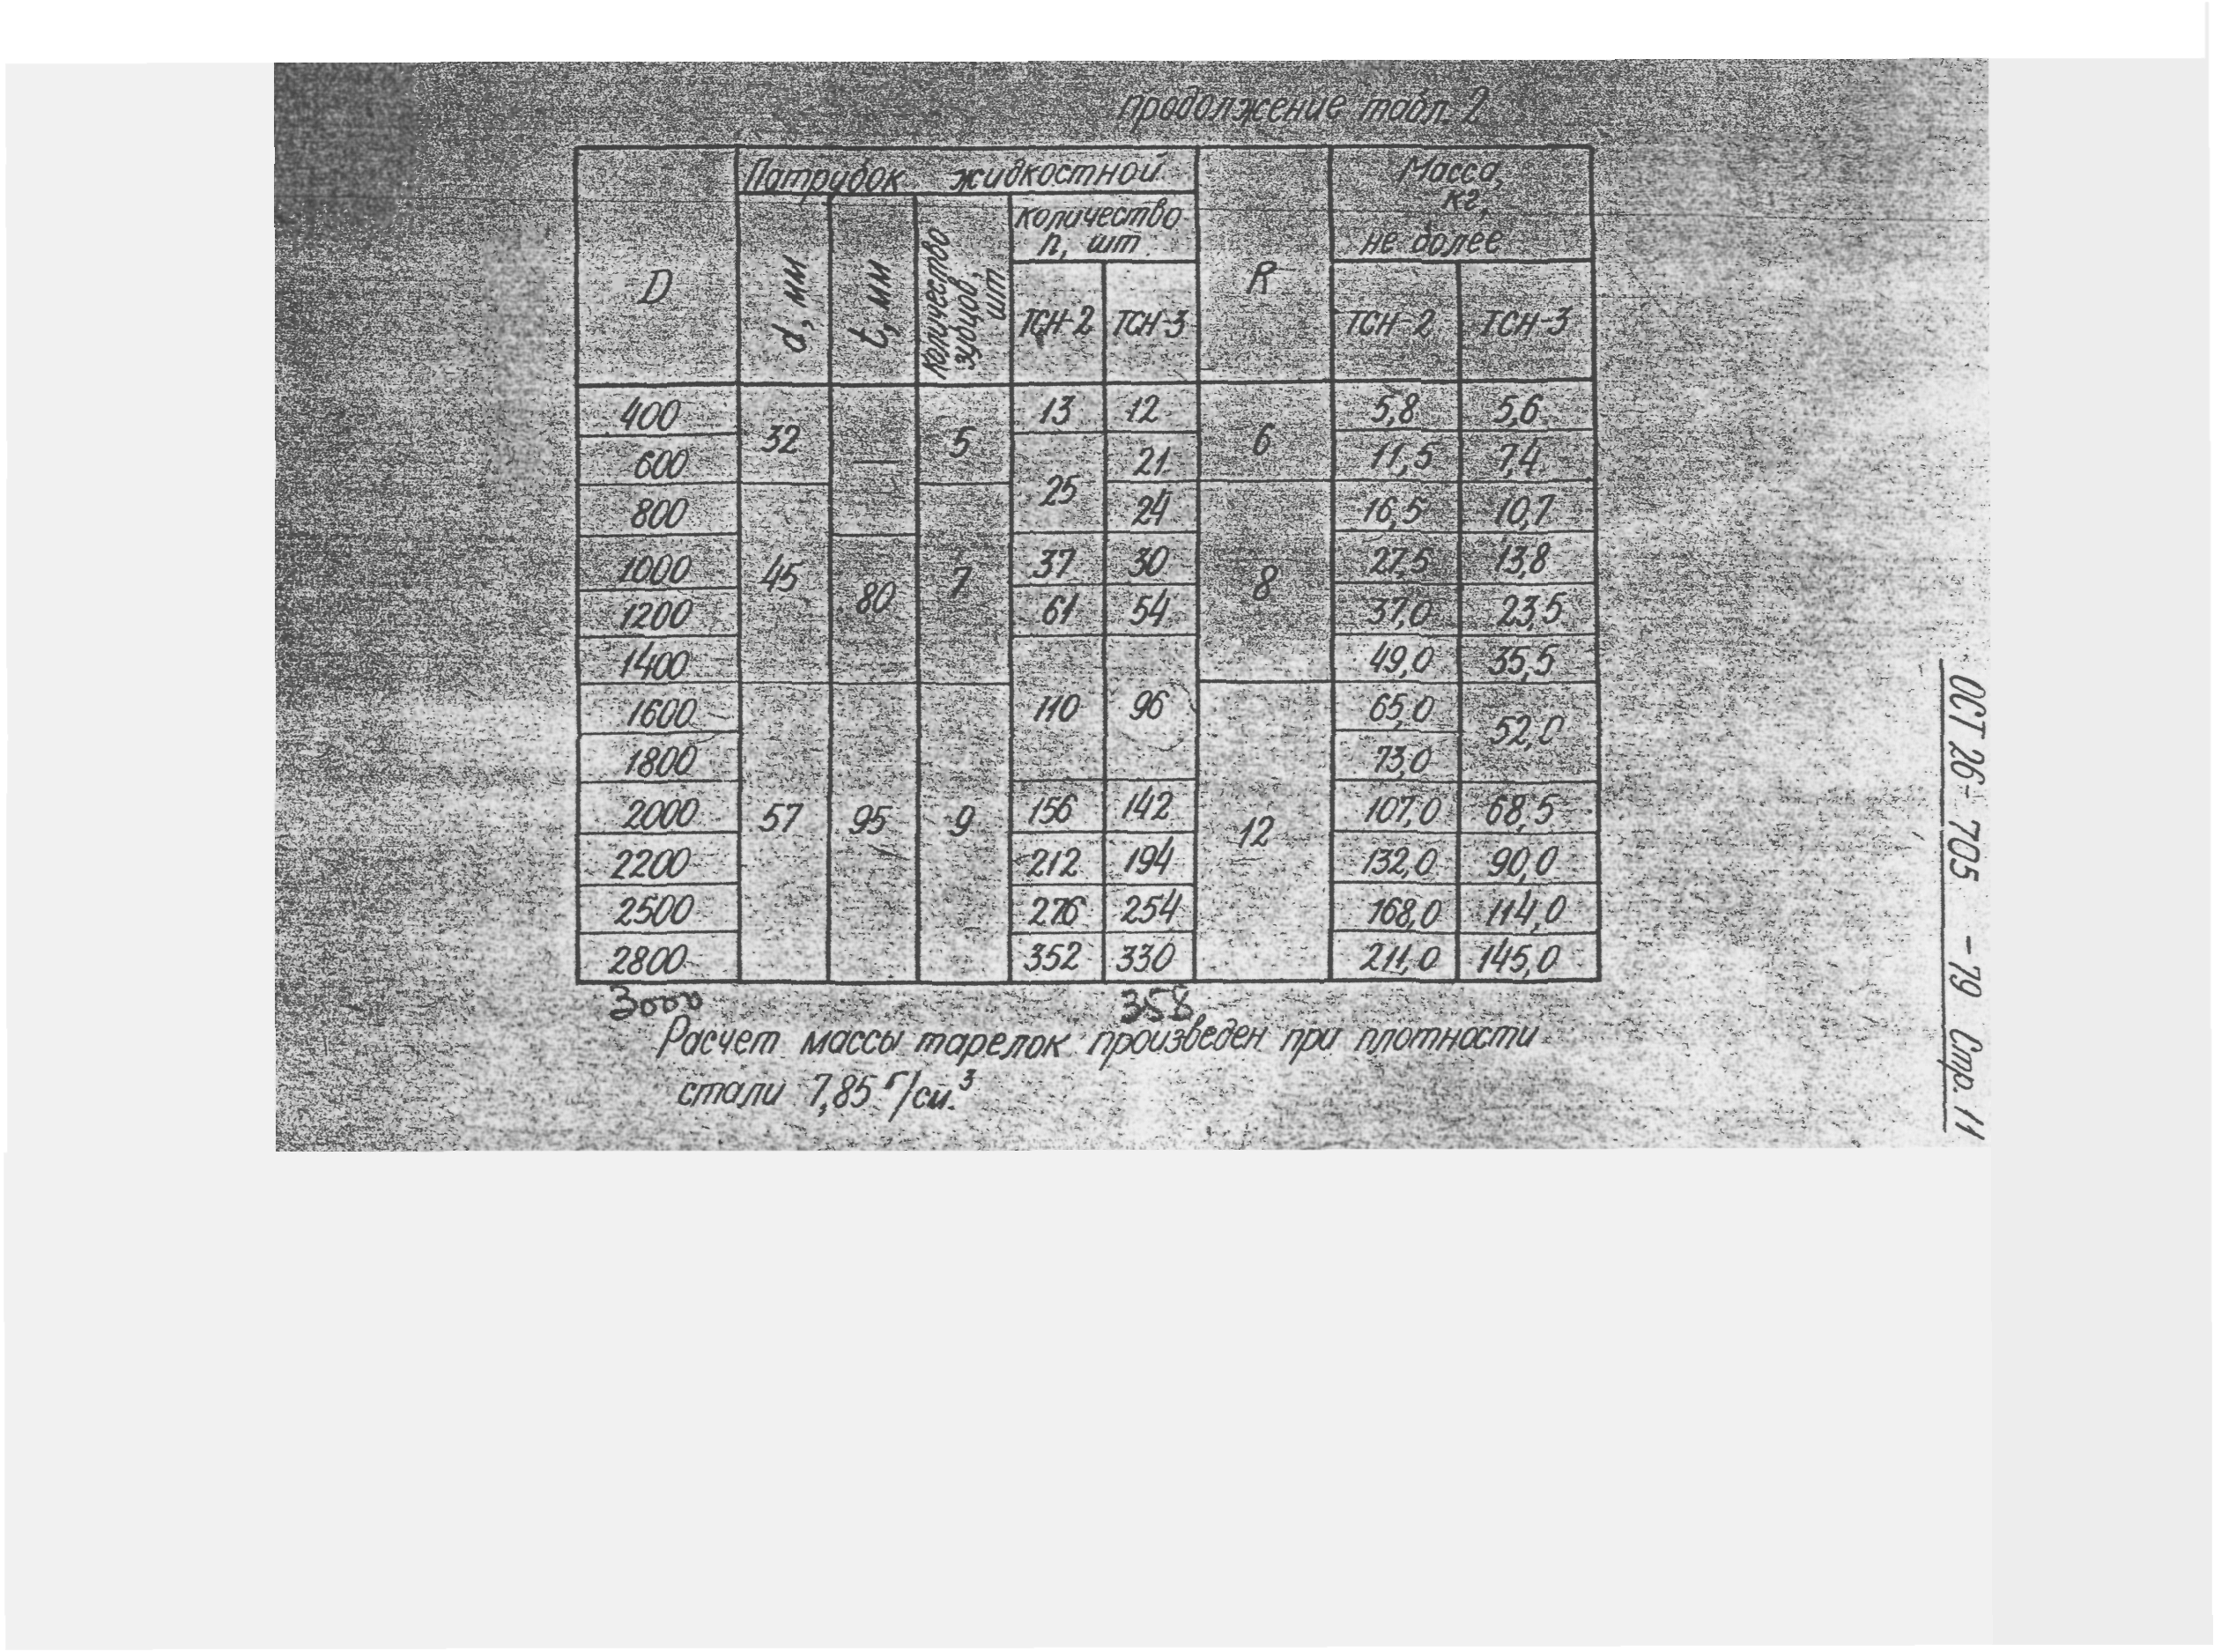 продолжение табл. 2
D
Патрубок жидкостной
d, мм
t, мм
количество зубцов, шт
количество n, шт
ТСН-2 ТСН-3
R
Масса, кг, не более
ТСН-2 ТСН-3
400 32 — 5 13 12 6 5,8 5,6
600 25 21 11,5 7,4
800 45 7 24 8 16,5 10,7
1000 80 37 30 27,5 13,8
1200 61 54 37,0 23,5
1400 110 96 49,0 35,5
1600 57 95 9 12 65,0 52,0
1800 73,0
2000 156 142 107,0 68,5
2200 212 194 132,0 90,0
2500 276 254 168,0 114,0
2800 352 330 211,0 145,0
3000 358
Расчет массы тарелок произведен при плотности
стали 7,85 г/см.³
ОСТ 26-705-79 Стр. 11